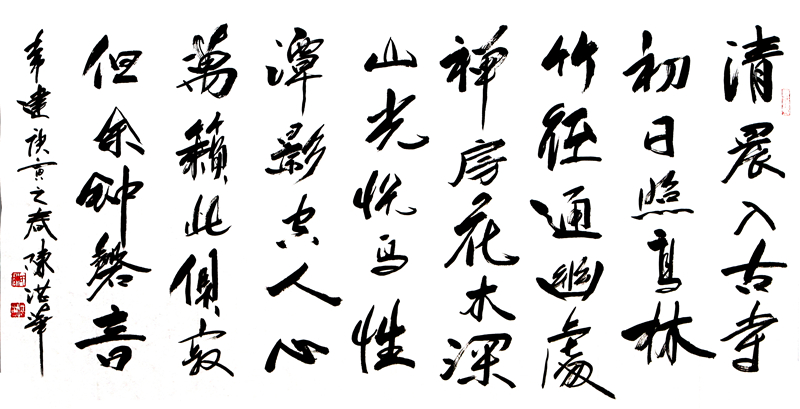 清晨入古寺
初日照高林
竹径通幽處
禅房花木深
山光悦鸟性
潭影空人心
萬籟此俱寂
但余钟磬音
常建 寅之春陳洪